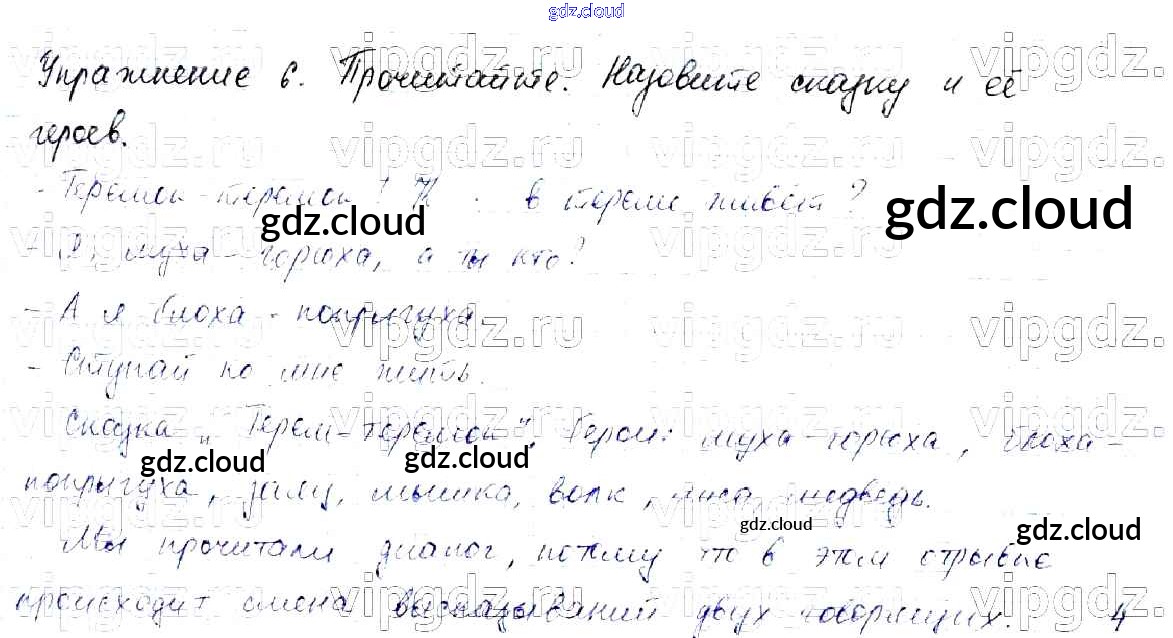 gdz.cloud
Упражнение 6. Прочитайте. Назовите сказку и её
героев.
- Теремок-теремок! К в тереме живёт?
- Я, муха-горюха, а ты кто?
- А я блоха-попрыгуха.
- Ступай ко мне жить.
Сказка „Терем-теремок". Герои: муха-горюха, блоха-
попрыгуха, мышка, волк, лиса, медведь.
Мы прочитали диалог, потому что в этом отрывке
происходит смена высказываний двух говорящих. 4
vipgdz.ru
gdz.cloud
gdz.cloud
gdz.cloud
gdz.cloud
gdz.cloud
gdz.cloud